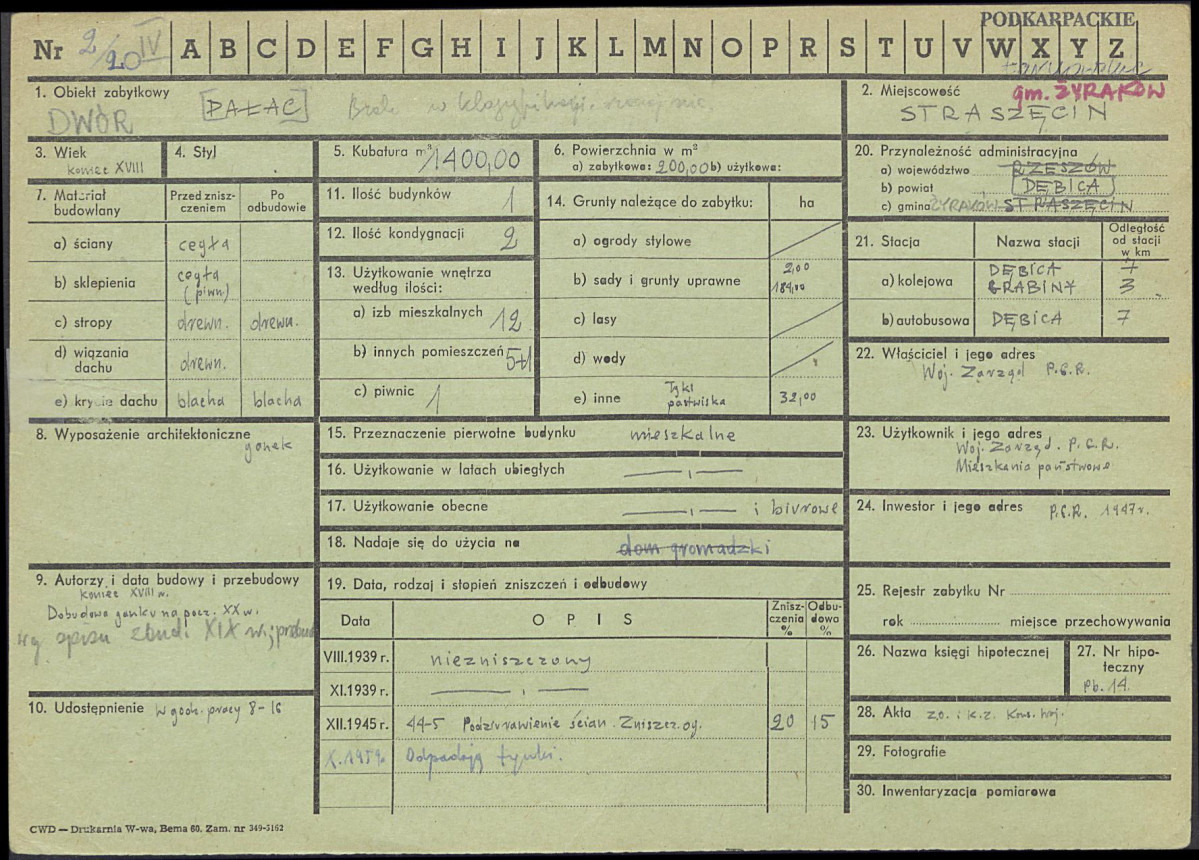 PODKARPACKIE
Nr 2/20 IV A B C D E F G H I J K L M N O P R S T U V W X Y Z
1. Obiekt zabytkowy
DWÓR [PAŁAC] Brak w klasyfikacji.
2. Miejscowość gm. ŻYRAKÓW
STRASZĘCIN
3. Wiek
koniec XVIII
4. Styl
5. Kubatura m³ 1400,00
6. Powierzchnia w m²
a) zabytkowa: 200,00 b) użytkowa:
7. Materiał budowlany
Przed zniszczeniem
Po odbudowie
a) ściany cegła
b) sklepienia cegła (piwn.)
c) stropy drewn. drewn.
d) wiązania dachu drewn.
e) krycie dachu blacha blacha
8. Wyposażenie architektoniczne
ganek
9. Autorzy i data budowy i przebudowy
koniec XVIII w.
Dobudowa ganku na pocz. XX w.
wg spisu zbud. XIX w;
10. Udostępnienie w godz. pracy 8-16
11. Ilość budynków 1
12. Ilość kondygnacji 2
13. Użytkowanie wnętrza
według ilości:
a) izb mieszkalnych 12
b) innych pomieszczeń 5+1
c) piwnic 1
14. Grunty należące do zabytku: ha
a) ogrody stylowe
b) sady i grunty uprawne 2,00
184,00
c) lasy
d) wody
e) inne łąki pastwiska 32,00
15. Przeznaczenie pierwotne budynku mieszkalne
16. Użytkowanie w latach ubiegłych — ı —
17. Użytkowanie obecne — ı — i biurowe
18. Nadaje się do użycia na dom gromadzki
19. Data, rodzaj i stopień zniszczeń i odbudowy
Data O P I S Zniszczenia % Odbudowa %
VIII.1939 r. niezniszczony
XI.1939 r. — ı —
XII.1945 r. 44-5 Podziurawienie ścian. 20 15
X.1959 Odpadają tynki.
20. Przynależność administracyjna
a) województwo RZESZÓW
b) powiat DĘBICA
c) gmina ŻYRAKÓW STRASZĘCIN
21. Stacja Nazwa stacji Odległość od stacji w km
a) kolejowa DĘBICA 7
GRABINY 3
b) autobusowa DĘBICA 7
22. Właściciel i jego adres
Woj. Zarząd P.G.R.
23. Użytkownik i jego adres
Woj. Zarząd. P.G.R.
Mieszkania państwowe
24. Inwestor i jego adres P.G.R. 1947r.
25. Rejestr zabytku Nr
rok miejsce przechowywania
26. Nazwa księgi hipotecznej
27. Nr hipoteczny
Pb. 14.
28. Akta
29. Fotografie
30. Inwentaryzacja pomiarowa
CWD — Drukarnia W-wa, Bema 60. Zam. nr 349-5162